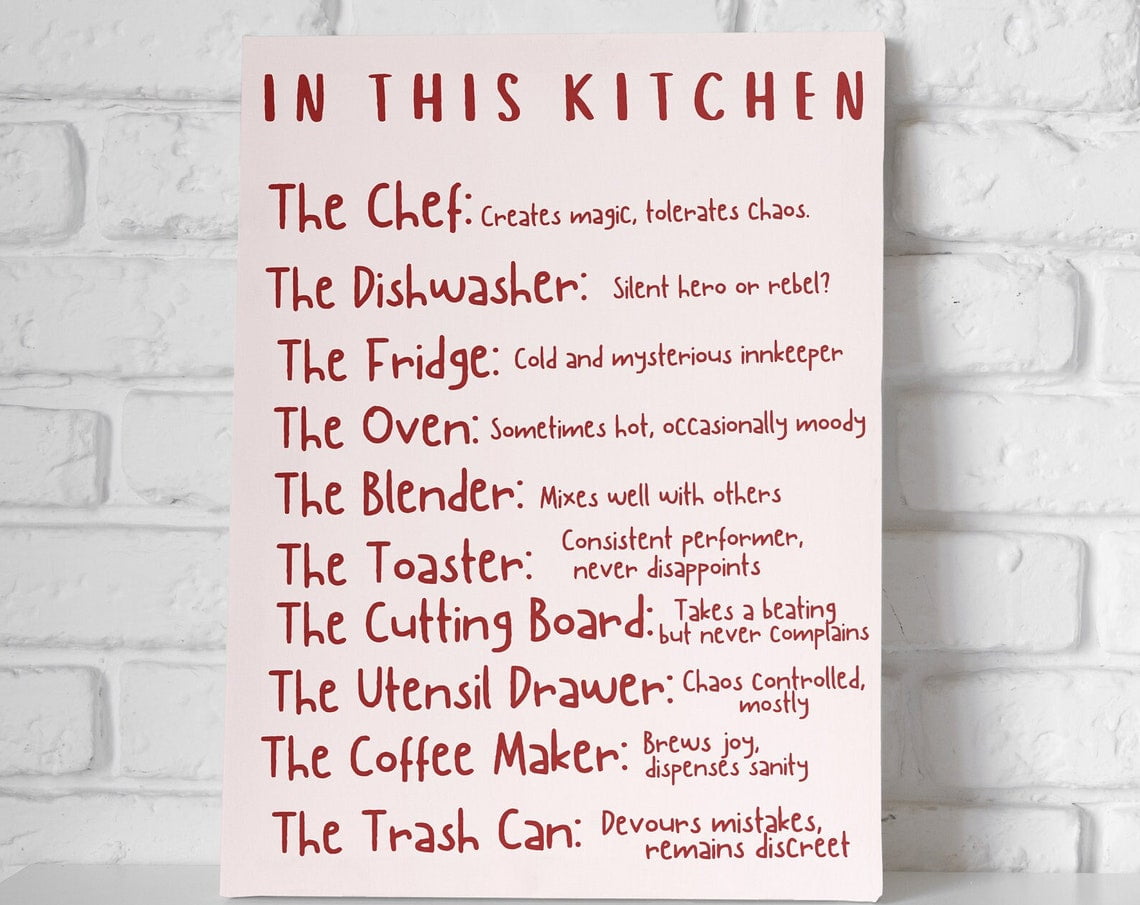 IN THIS KITCHEN
The Chef: Creates magic, tolerates chaos.
The Dishwasher: Silent hero or rebel?
The Fridge: Cold and mysterious innkeeper
The Oven: Sometimes hot, occasionally moody
The Blender: Mixes well with others
The Toaster: Consistent performer,
never disappoints
The Cutting Board: Takes a beating
but never complains
The Utensil Drawer: Chaos controlled,
mostly
The Coffee Maker: Brews joy,
dispenses sanity
The Trash Can: Devours mistakes,
remains discreet